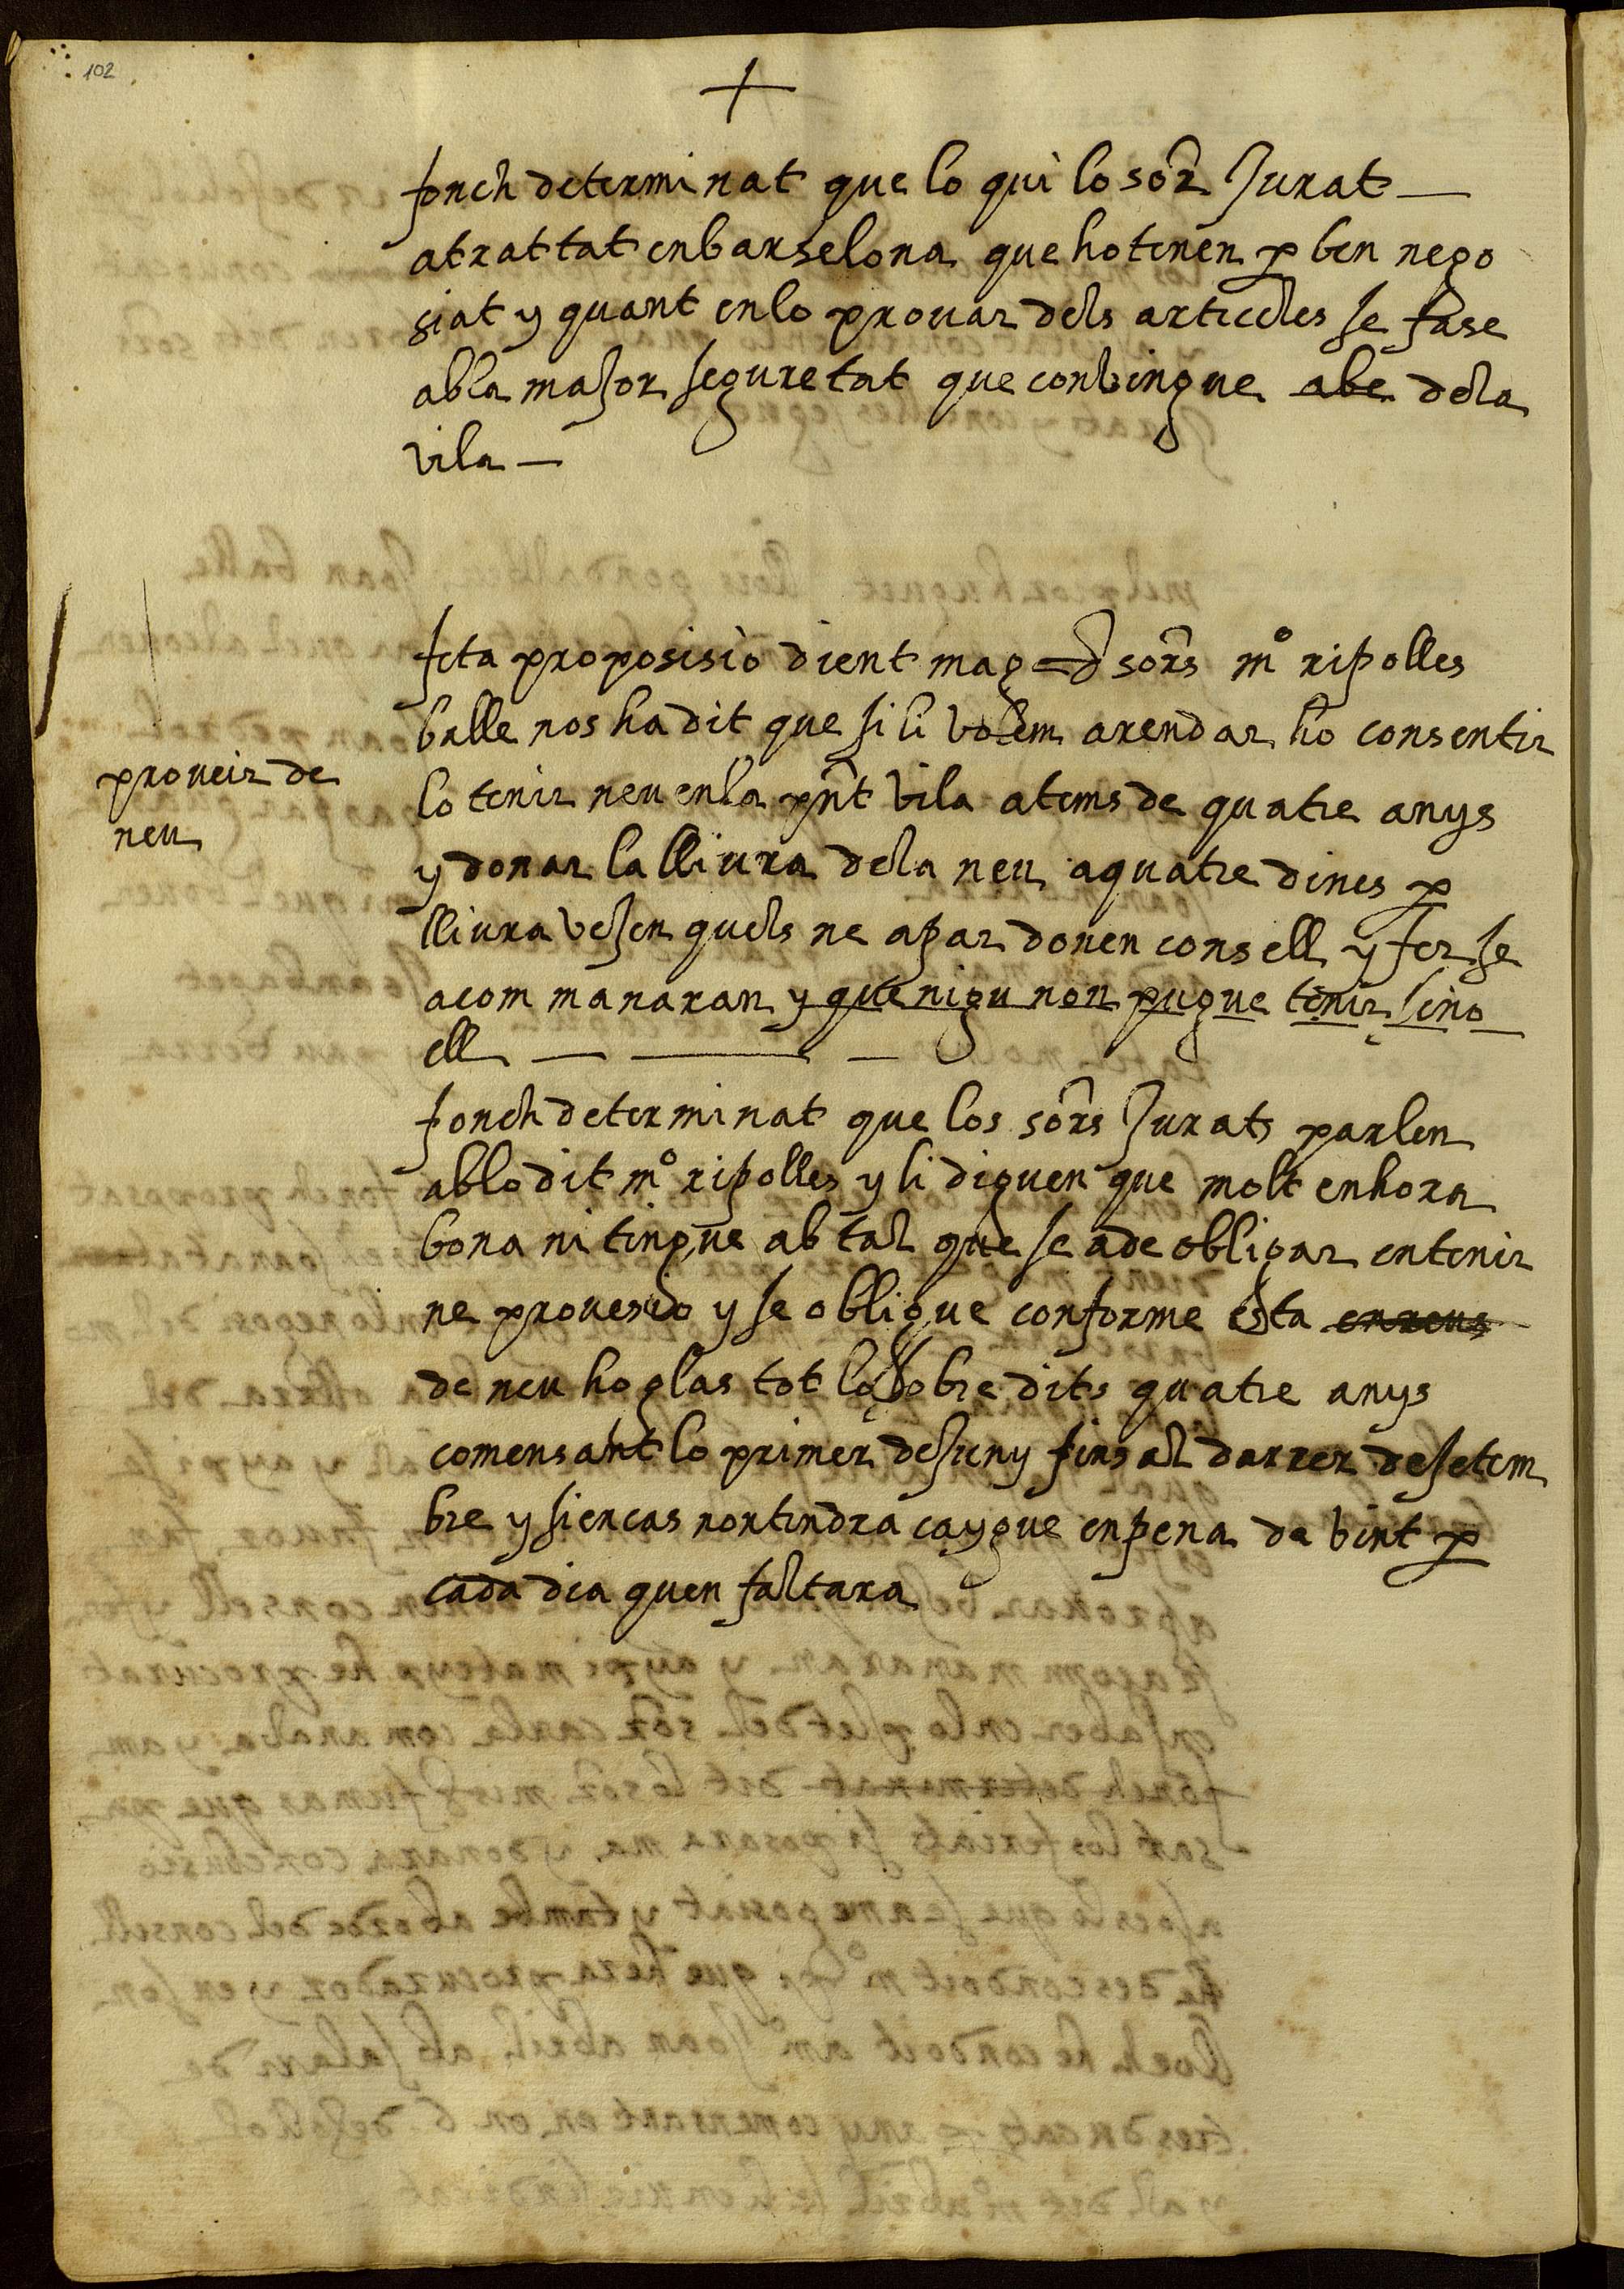 102
+
fonch determinat que lo qui lo sor Jurat
a trattat en barselona que ho tenen p ben nego
siat y quant en lo provar dels articcles se fase
ab la major seguretat que convingue abe dela
vila
feta proposisio dient mag sors mº ripolles
balle nos ha dit que si li volem arendar ho consentir
proveir de
neu
lo tenir neu en la pnt vila a tems de quatre anys
y donar la lliura dela neu a quatre dines p
lliura vejen quels ne apar donen consell y fer se
a com manaran y que nigu non pugue tenir sino
ell
fonch determinat que los sors Jurats parlen
ab lo dit mº ripolles y li diguen que molt enhora
bona ni tingue ab tal que se a de obligar en tenir
ne provesio y se obligue conforme esta
de neu ho glas tot lo sobre dits quatre anys
comensant lo primer de juny fins al darrer de setem
bre y si en cas non tindra caygue en pena de vint p
cada dia quen faltara